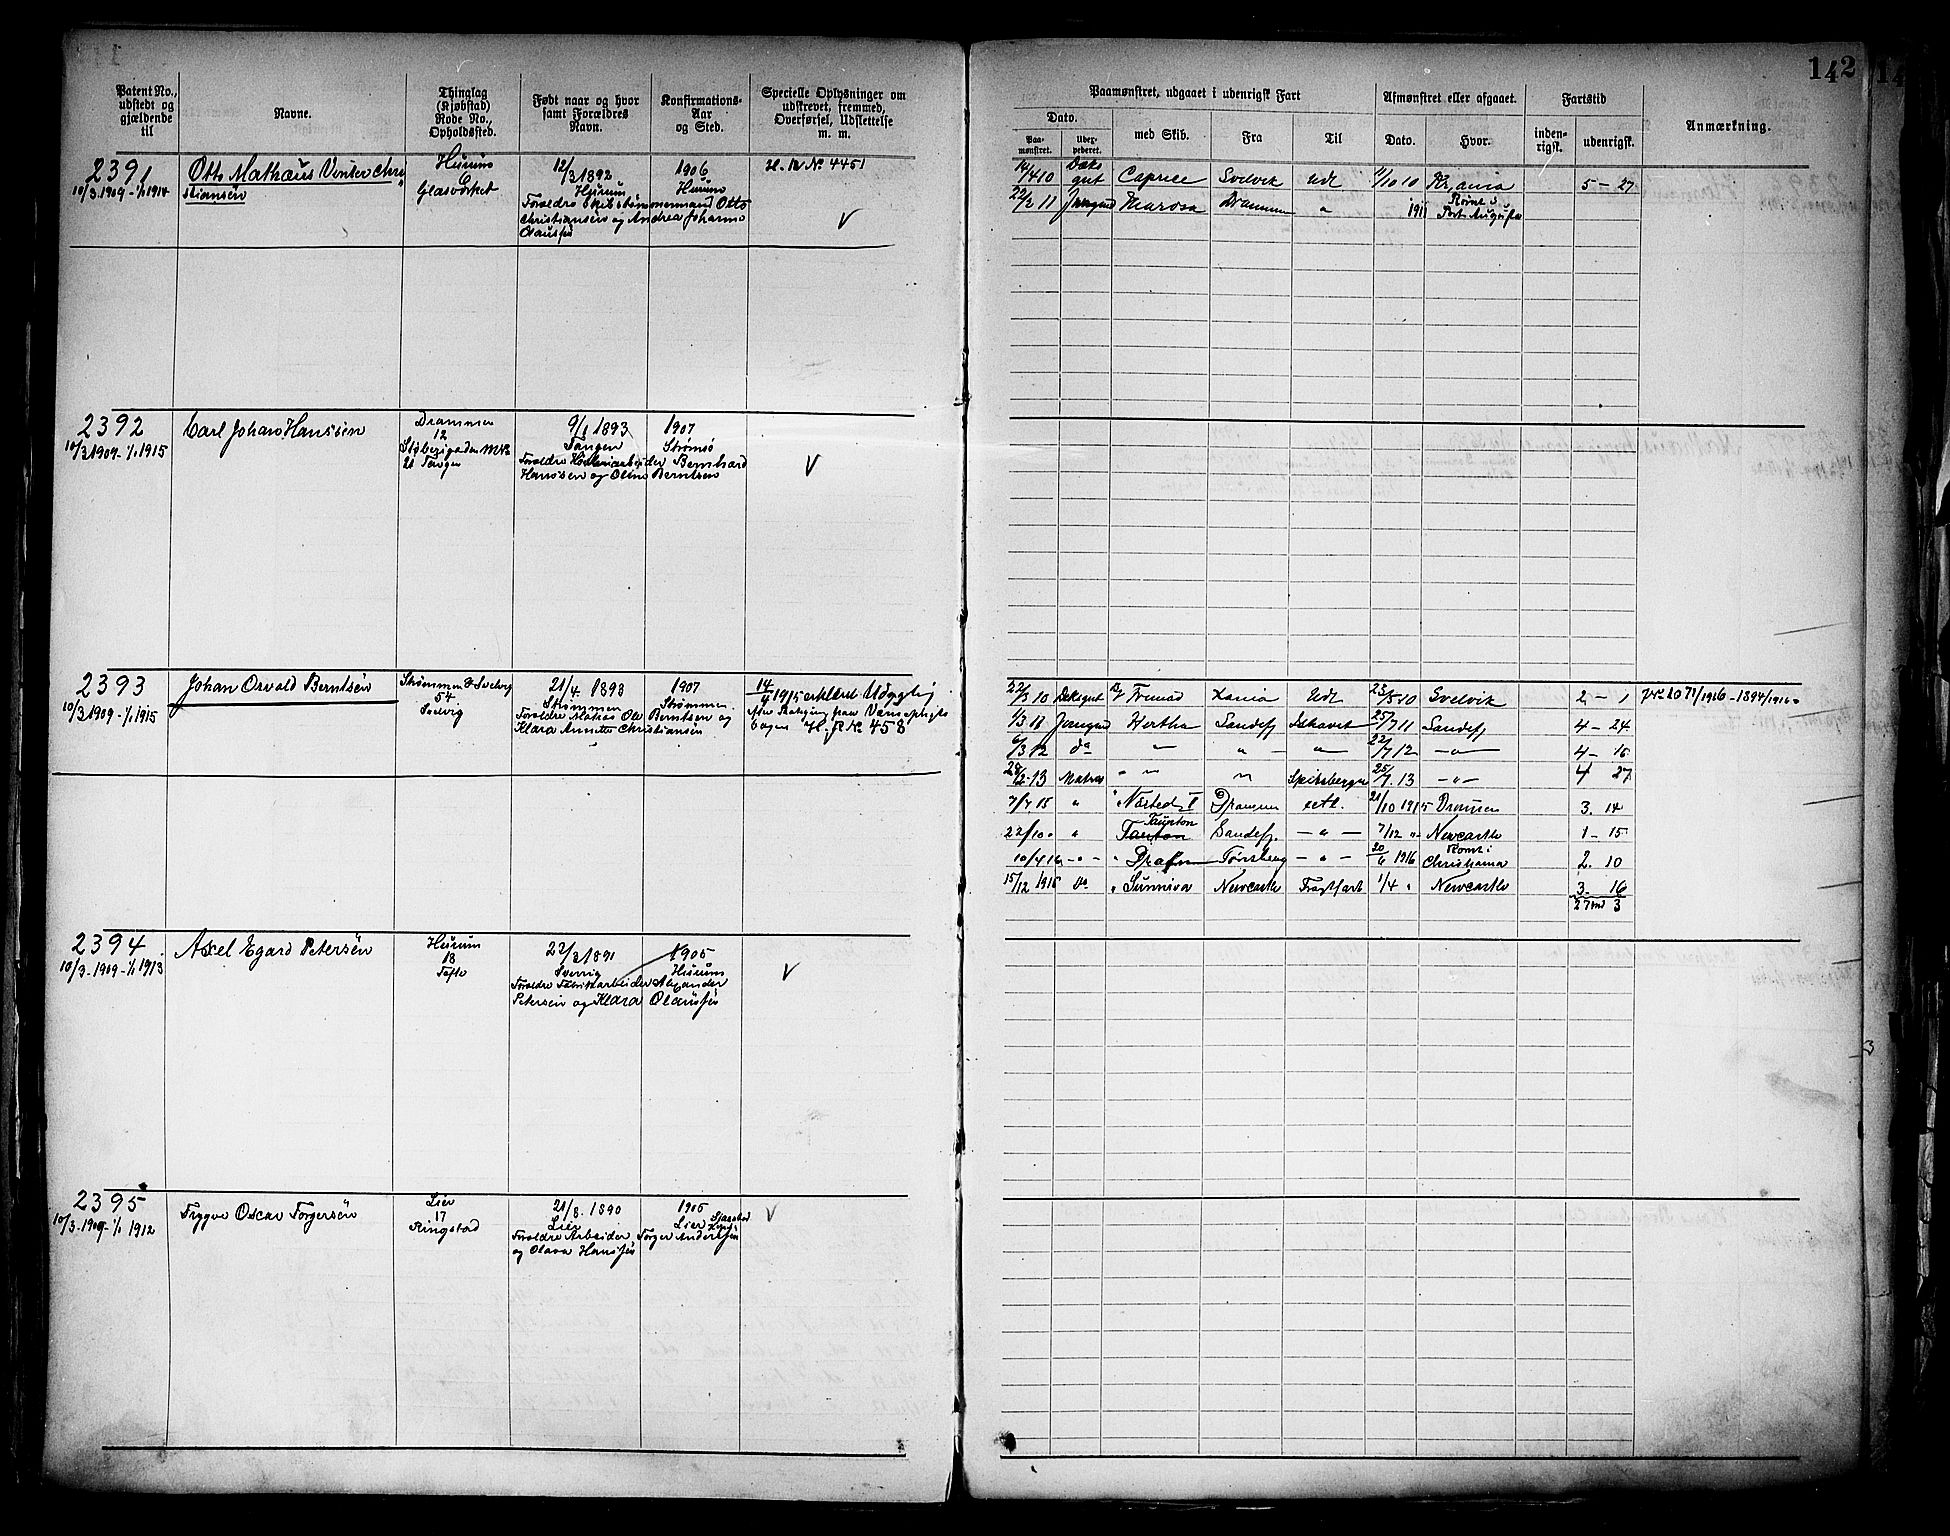 142
Patent No., udstedt og gjældende til
Navne.
Thinglag (Kjøbstad) Rode No., Opholdssted.
Født naar og hvor samt Forældres Navn.
Konfirmations-Aar og Sted.
Specielle Oplysninger om udskrevet, fremmed, Overførsel, Udslettelse m. m.
Paamønstret, udgaaet i udenrigsk Fart
Afmønstret eller afgaaet.
Fartstid
Anmærkning.
Dato.
med Skib.
Fra
Til
Dato.
Hvor.
inden-rigsk.
udenrigsk.
Paa-mønstret.
2391
10/3 1909 - 1/1 1914
Otto Mathæus Vinter Chri
stiansen
Hurum
6
Glasværket
12/3 1892
Hurum
Forældre Skibstømmermand Otto
Christiansen og Andrea Johanne
Olausen
1906
Hurum
No 4451
V
14/4 10 Dæksgut Caprice Svelvik Udl 11/10 10 Kr,ania 5 - 27
22/2 11 Jungmd Drammen " 1911 Rømt i Port Augusta
2392
10/3 1909 - 1/1 1915
Carl Johan Hanssen
Drammen
12
21 Tangen
9/1 1893
Tangen
Forældre Høvleriarbeider Bernhard
Hanssen og Oline Berntsen
1907
Strømsø
V
2393
10/3 1909 - 1/1 1915
Johan Osvald Berntsen
Strømmen & Svelvig
54
Svelvig
21/4 1893
Strømmen
Forældre Mathis Ole Berntsen og
Klara Annette Christiansen
1907
Strømmen
14/4 1915 erklæret Udygtig
efter Ansøgning fra Værnepligts
H. R No 458
22/3 10 Dæksgut Xania Udl 23/5 10 Svelvik 2 - 1
1/3 11 Jungmd Hertha Sandefj Ishavet 25/7 11 Sandefj 4 - 24
6/3 12 do " " " 22/7 12 " 4 - 16
28/2 - 13 Matros " " " Spitsbergen 25/7. 13 - " - 4 27
7/7. 15 " Drammen 21/10 1915 Drammen 3. 14
Taunton
22/10 " " Tauton Sandefj. - " - 7/12 " Newcastle 1 - 15
10/4 16 - " - Tønsberg - " - 20/6 1916 Rømt i Christiania 2. 10
15/12 1916 Do " Sunniva Newcastle Fragtfart 1/4 " Newcastle 3 - 16
27 md 3
2394
10/3 - 1909 - 1/1 1913
Axel Egard Petersen
Hurum
18
Tofte
Sverrig
Forældre Fabrikarbeider Alexander
Petersen og Klara Olausen
1905
Hurum
V
2395
10/3 - 1909 - 1/1 1912
Trygve Oscar Torgersen
Lier
17
Ringstad
21/8. 1890
Lier
Forældre Arbeider Torger Andersen
og Olava Hansen
1905
Lier
V